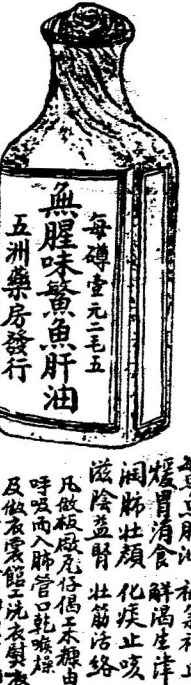 每罇壹元二毛五
無腥味鰵魚肝油
五洲藥房發行
煖胃消食 解渴生津
潤肺壯顔 化痰止咳
滋陰益腎 壯筋活絡
凡做板廠瓦仔偈工米糠由
呼吸而入肺管口乾喉燥
及做衣裳舘工洗衣熨衣